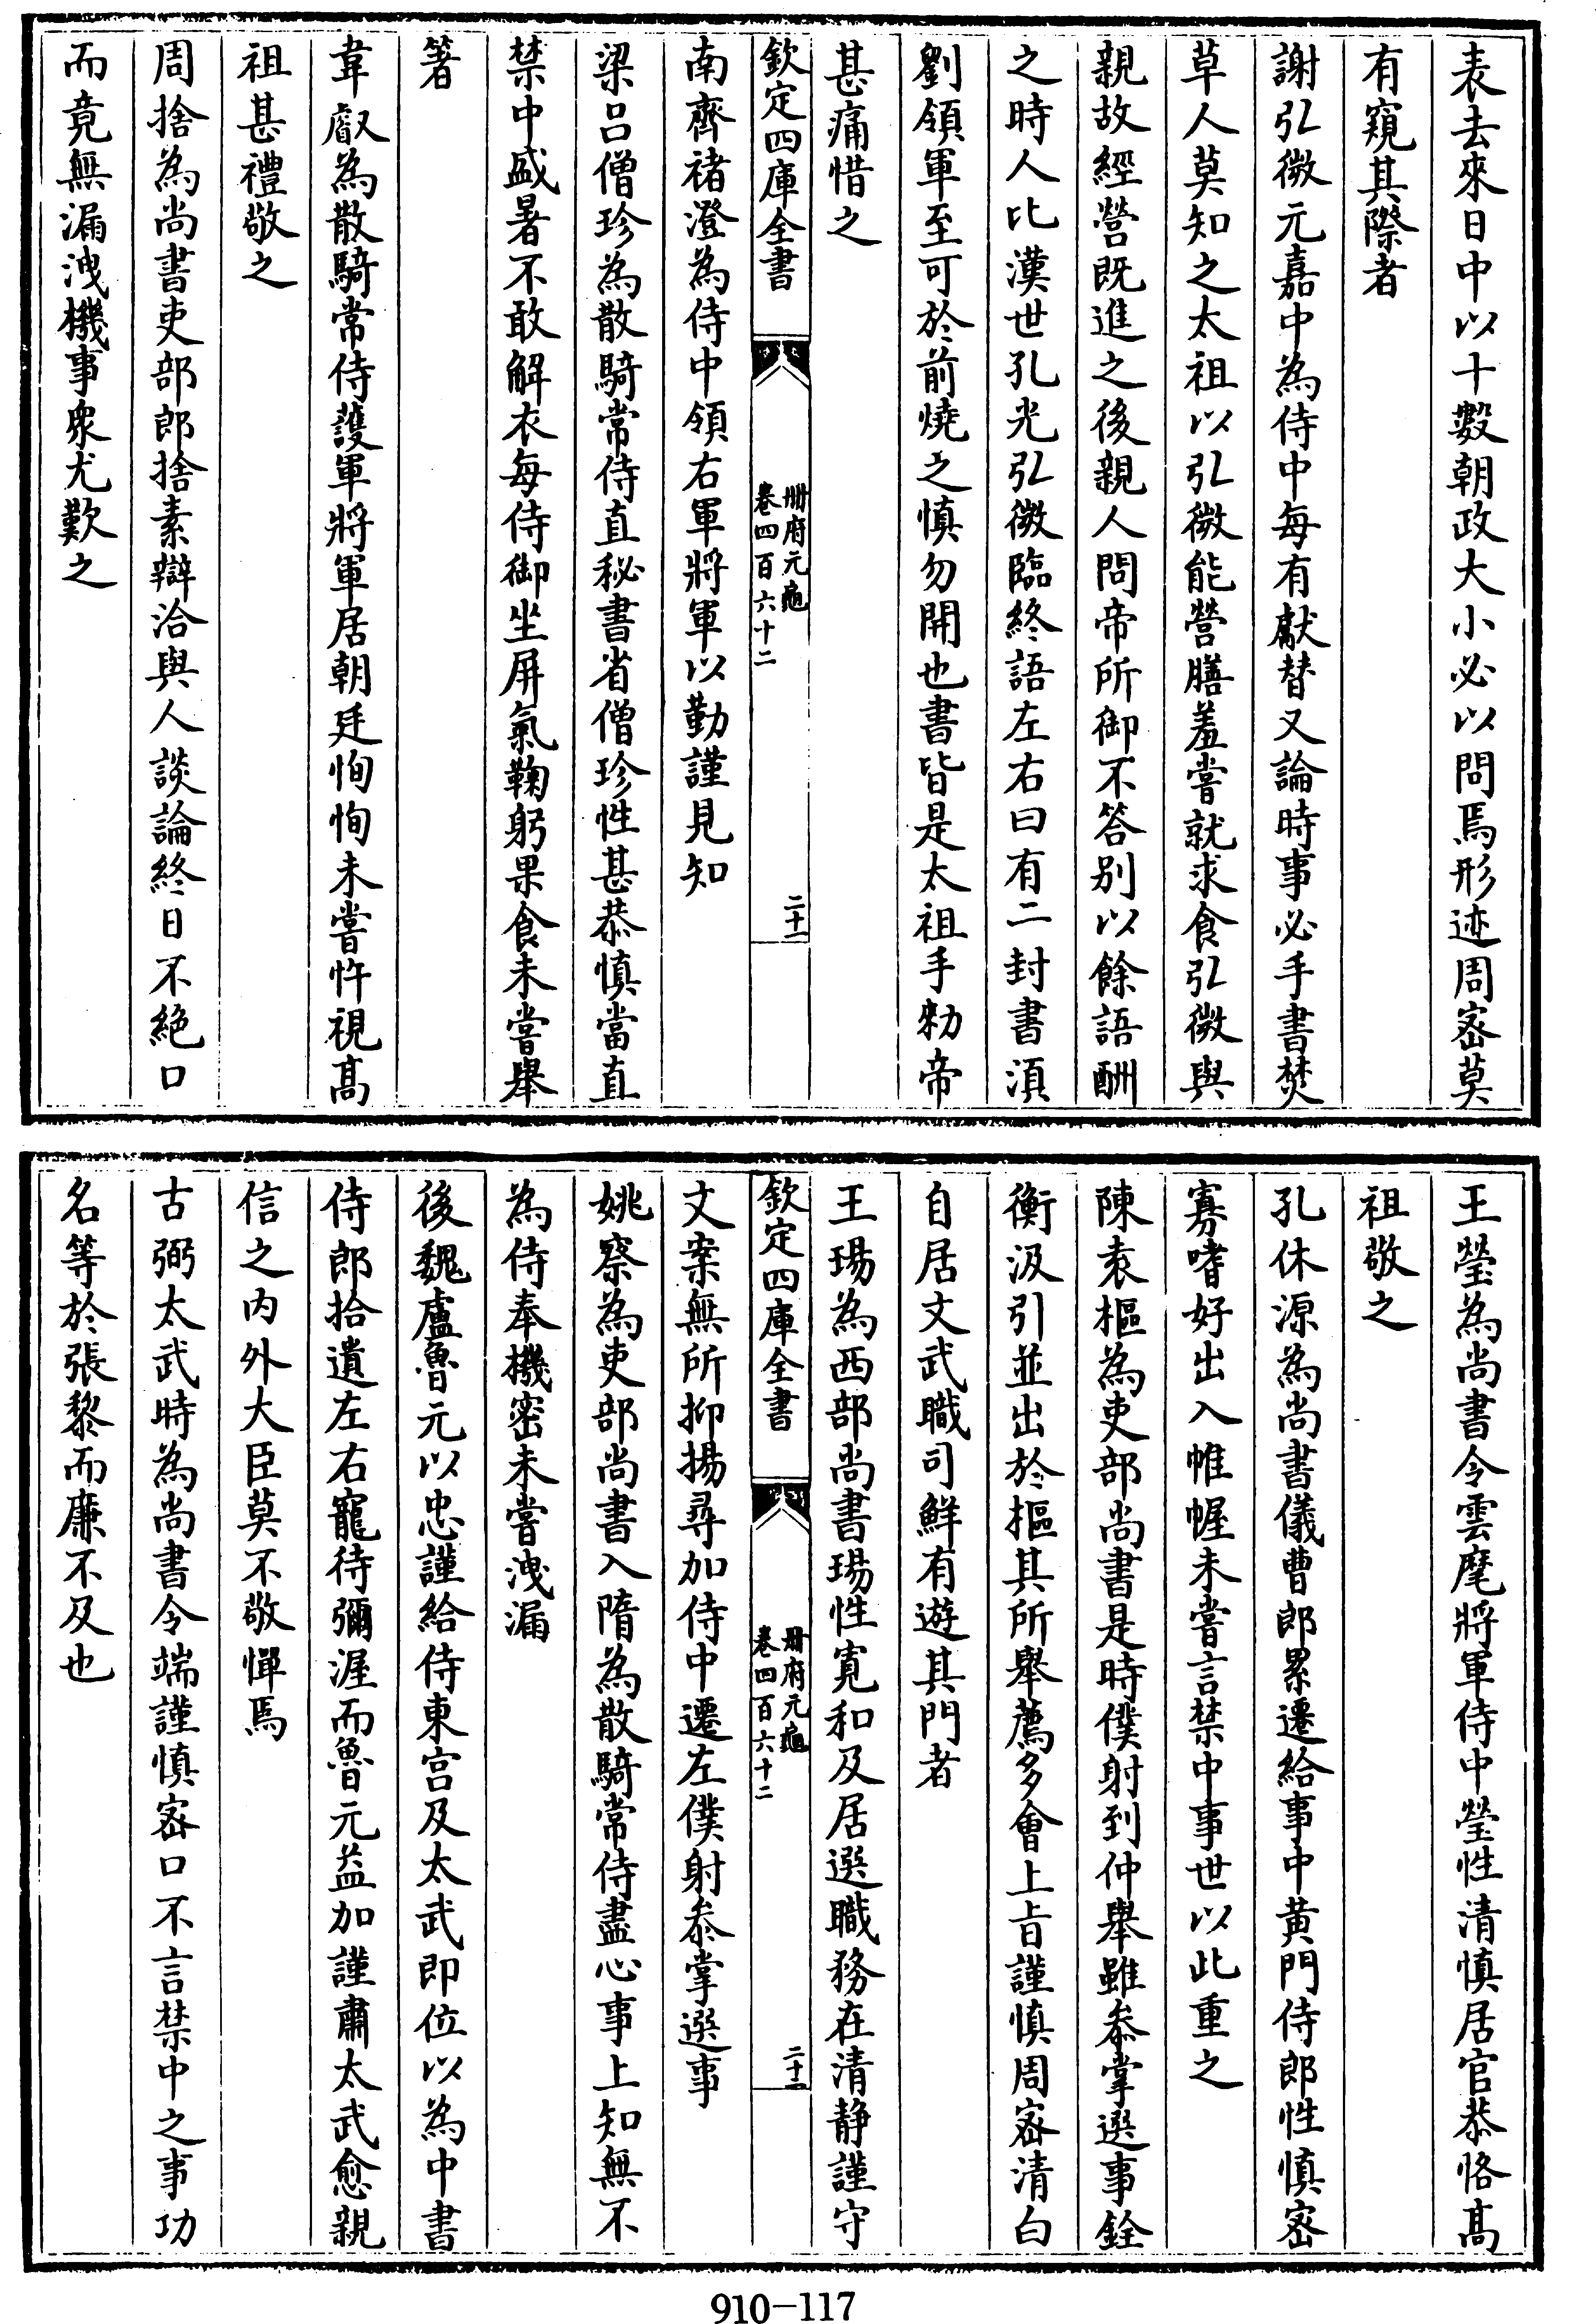 表去來日中以十數朝政大小必以問焉形迹周宻莫
有窺其際者
謝弘微元嘉中為侍中每有獻替又論時事必手書焚
草人莫知之太祖以弘微能營膳羞嘗就求食弘微與
親故經營既進之後親人問帝所御不答别以餘語酬
之時人比漢世孔光弘微臨終語左右曰有二封書湏
劉領軍至可於前燒之慎勿開也書皆是太祖手勑帝
甚痛惜之
欽定四庫全書
冊府元龜
卷四百六十二
二十一
南齊褚澄為侍中領右軍將軍以勤謹見知
梁吕僧珍為散騎常侍直秘書省僧珍性甚恭慎當直
禁中盛暑不敢解衣每侍御坐屏氣鞠躬果食未嘗舉
箸
韋叡為散騎常侍護軍將軍居朝廷恂恂未嘗忤視髙
祖甚禮敬之
周捨為尚書吏部郎捨素辯洽與人談論終日不絶口
而竟無漏洩機事衆尤歎之
王瑩為尚書令雲麾將軍侍中瑩性清慎居官恭恪髙
祖敬之
孔休源為尚書儀曹郎累遷給事中黄門侍郎性慎宻
寡嗜好出入帷幄未嘗言禁中事世以此重之
陳袁樞為吏部尚書是時僕射到仲舉雖叅掌選事銓
衡汲引並出於樞其所舉薦多會上㫖謹慎周宻清白
自居文武職司鮮有遊其門者
王瑒為西部尚書瑒性寛和及居選職務在清静謹守
欽定四庫全書
冊府元龜
卷四百六十二
二十二
文案無所抑揚尋加侍中遷左僕射叅掌選事
姚察為吏部尚書入隋為散騎常侍盡心事上知無不
為侍奉機密未嘗洩漏
後魏盧魯元以忠謹給侍東宫及太武即位以為中書
侍郎拾遺左右寵待彌渥而魯元益加謹肅太武愈親
信之内外大臣莫不敬憚焉
古弼太武時為尚書令端謹慎宻口不言禁中之事功
名等於張黎而亷不及也
910-117